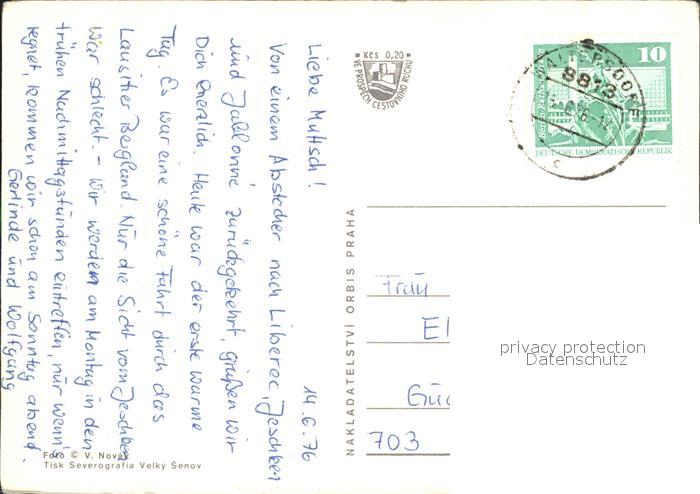 Liebe Muttsch! 14.6.76
Von einem Abstecher nach Liberec, Jeschken
und Jablonné zurückgekehrt, grüßen wir
Dich herzlich. Heute war der erste warme
Tag. Es war eine schöne Fahrt durch das
Lausitzer Bergland. Nur die Sicht vom Jeschken
war schlecht. – Wir werden am Montag in den
frühen Nachmittagsstunden eintreffen, nur wenn's
regnet, kommen wir schon am Sonntag abend.
Gerlinde und Wolfgang
Foto © V. Novák
Tisk Severografia Velký Šenov
NAKLADATELSTVÍ ORBIS PRAHA
Kčs 0,20
VE PROSPĚCH CESTOVNÍHO RUCHU
10
DEUTSCHE DEMOKRATISCHE REPUBLIK
WALTERSDORF
8813
Frau
El
703
privacy protection
Datenschutz